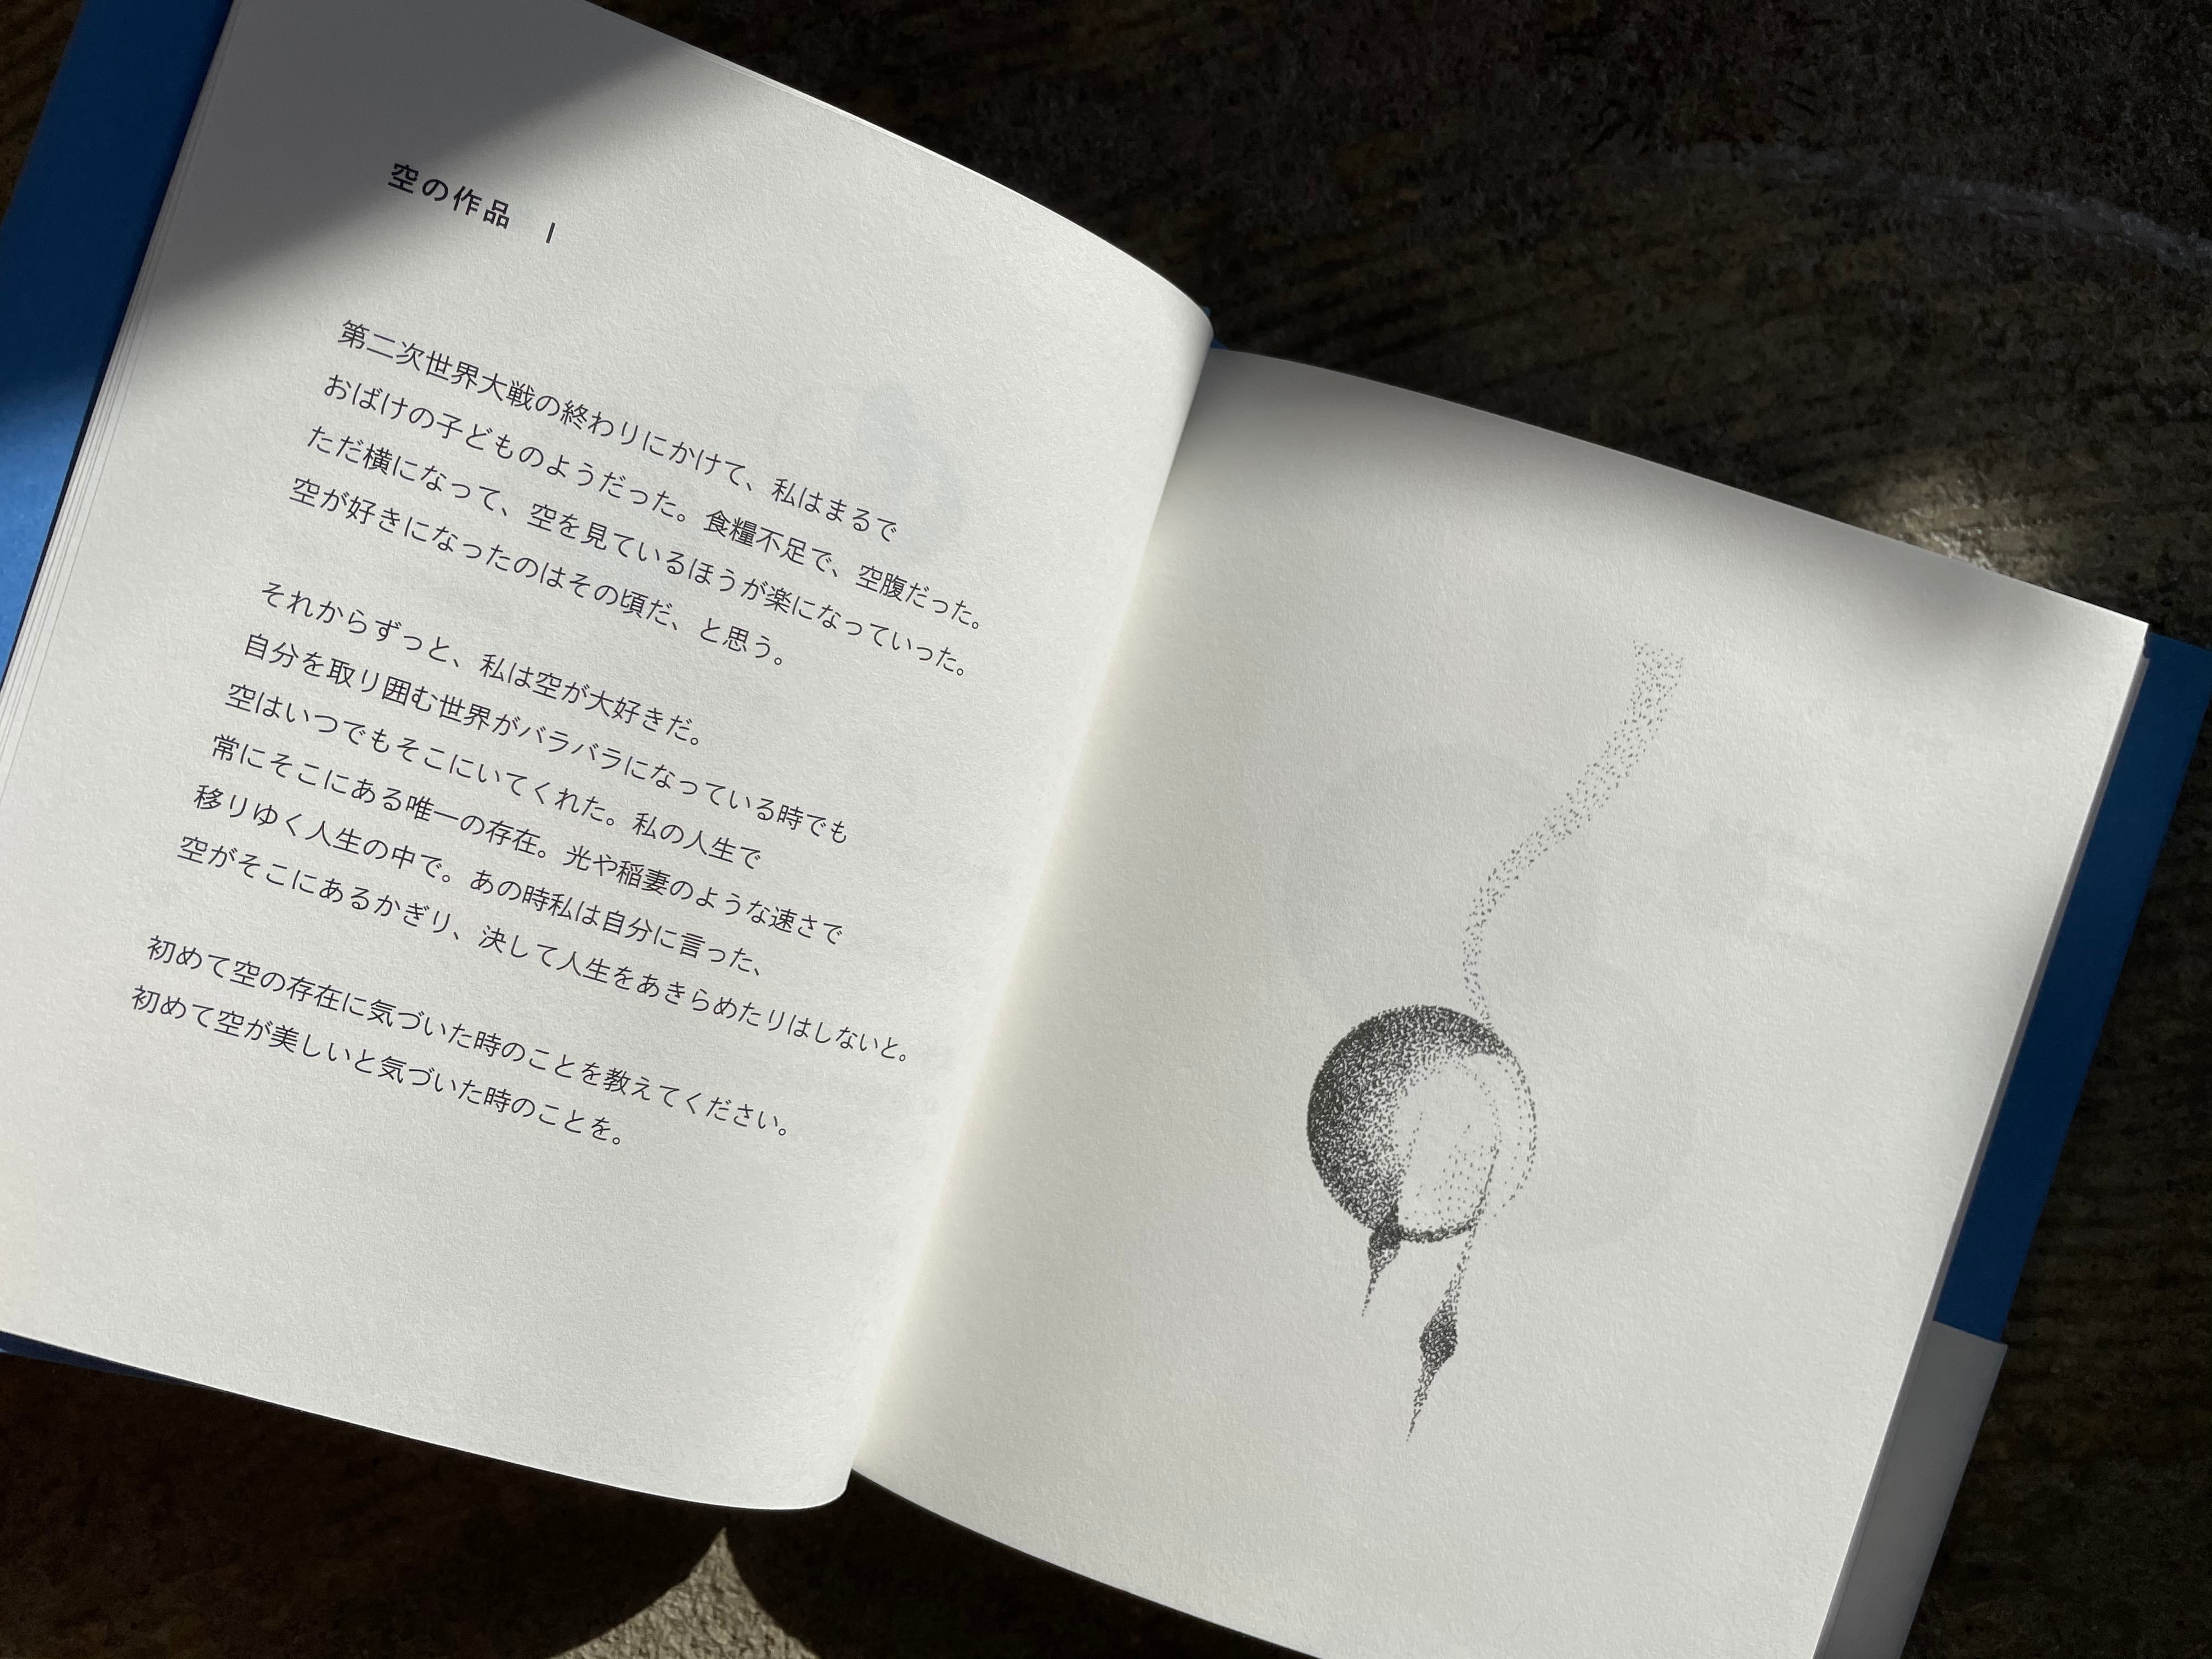 空の作品 I
第二次世界大戦の終わりにかけて、私はまるで
おばけの子どものようだった。食糧不足で、空腹だった。
ただ横になって、空を見ているほうが楽になっていった。
空が好きになったのはその頃だ、と思う。
それからずっと、私は空が大好きだ。
自分を取り囲む世界がバラバラになっている時でも
空はいつでもそこにいてくれた。私の人生で
常にそこにある唯一の存在。光や稲妻のような速さで
移りゆく人生の中で。あの時私は自分に言った、
空がそこにあるかぎり、決して人生をあきらめたりはしないと。
初めて空の存在に気づいた時のことを教えてください。
初めて空が美しいと気づいた時のことを。